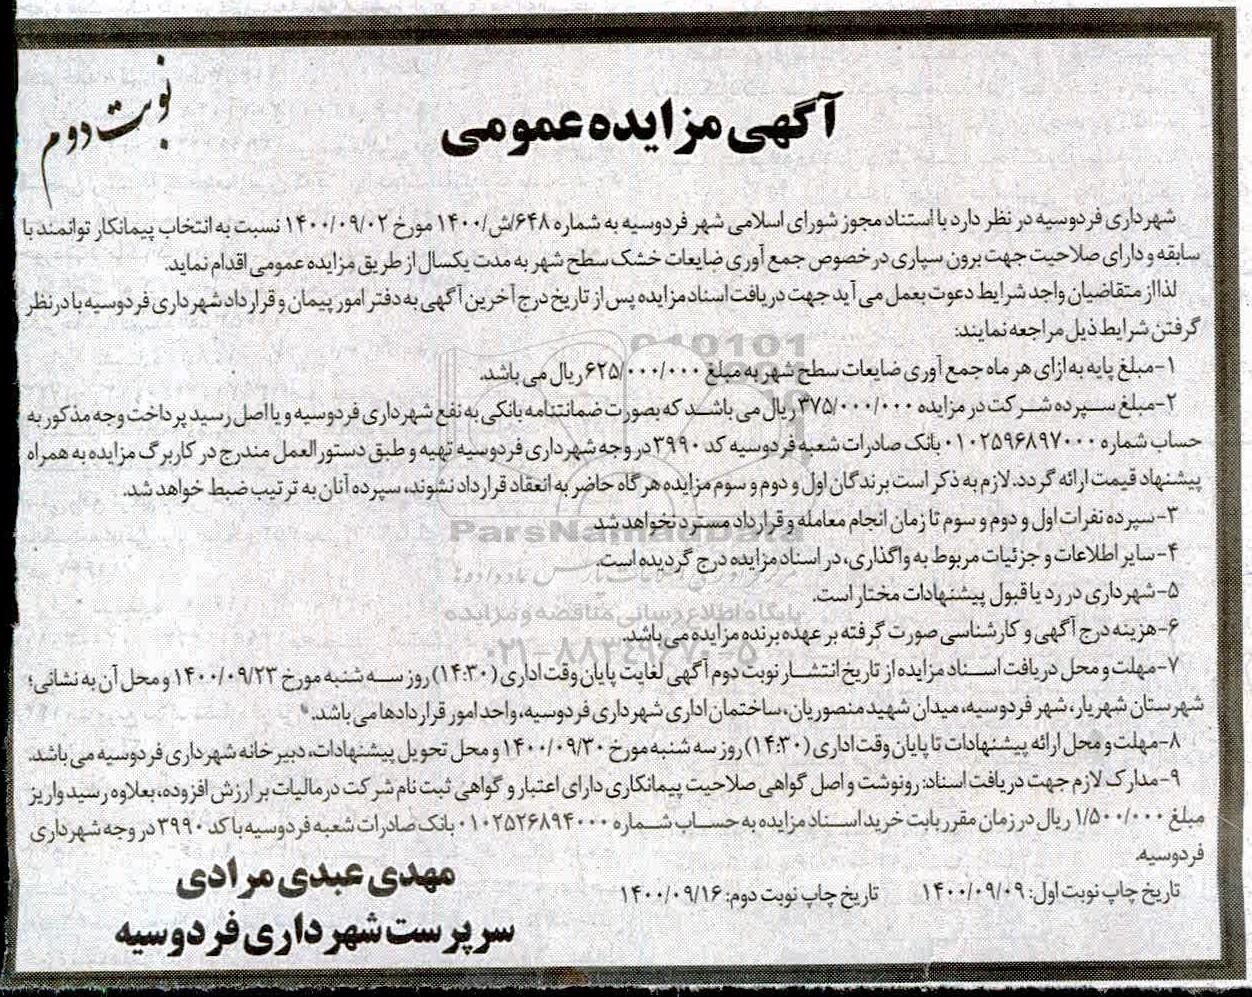 نوبت دوم
آگهی مزایده عمومی
شهرداری فردوسیه در نظر دارد با استناد مجوز شورای اسلامی شهر فردوسیه به شماره ۶۴۸/ش/۱۴۰۰ مورخ ۱۴۰۰/۰۹/۰۲ نسبت به انتخاب پیمانکار توانمند با
سابقه و دارای صلاحیت جهت برون سپاری در خصوص جمع آوری ضایعات خشک سطح شهر به مدت یکسال از طریق مزایده عمومی اقدام نماید.
لذا از متقاضیان واجد شرایط دعوت بعمل می آید جهت دریافت اسناد مزایده پس از تاریخ درج آخرین آگهی به دفتر امور پیمان و قرارداد شهرداری فردوسیه با در نظر
گرفتن شرایط ذیل مراجعه نمایند:
۱-مبلغ پایه به ازای هر ماه جمع آوری ضایعات سطح شهر به مبلغ ۶۲۵/۰۰۰/۰۰۰ ریال می باشد.
۲-مبلغ سپرده شرکت در مزایده ۳۷۵/۰۰۰/۰۰۰ ریال می باشد که بصورت ضمانتنامه بانکی به نفع شهرداری فردوسیه و یا اصل رسید پرداخت وجه مذکور به
حساب شماره ۰۱۰۲۵۹۶۸۹۷۰۰۰ بانک صادرات شعبه فردوسیه کد ۳۹۹۰ در وجه شهرداری فردوسیه تهیه و طبق دستورالعمل مندرج در کاربرگ مزایده به همراه
پیشنهاد قیمت ارائه گردد. لازم به ذکر است برندگان اول و دوم و سوم مزایده هرگاه حاضر به انعقاد قرارداد نشوند، سپرده آنان به ترتیب ضبط خواهد شد.
۳-سپرده نفرات اول و دوم و سوم تا زمان انجام معامله و قرارداد مسترد نخواهد شد
۴-سایر اطلاعات و جزئیات مربوط به واگذاری، در اسناد مزایده درج گردیده است.
۵-شهرداری در رد یا قبول پیشنهادات مختار است.
۶-هزینه درج آگهی و کارشناسی صورت گرفته بر عهده برنده مزایده می باشد.
۷-مهلت و محل دریافت اسناد مزایده از تاریخ انتشار نوبت دوم آگهی لغایت پایان وقت اداری (۱۴:۳۰) روز سه شنبه مورخ ۱۴۰۰/۰۹/۲۳ و محل آن به نشانی؛
شهرستان شهریار، شهر فردوسیه، میدان شهید منصوریان، ساختمان اداری شهرداری فردوسیه، واحد امور قراردادها می باشد.
۸-مهلت و محل ارائه پیشنهادات تا پایان وقت اداری (۱۴:۳۰) روز سه شنبه مورخ ۱۴۰۰/۰۹/۳۰ و محل تحویل پیشنهادات، دبیرخانه شهرداری فردوسیه می باشد.
۹-مدارک لازم جهت دریافت اسناد: رونوشت و اصل گواهی صلاحیت پیمانکاری دارای اعتبار و گواهی ثبت نام شرکت در مالیات بر ارزش افزوده، بعلاوه رسید واریز
مبلغ ۱/۵۰۰/۰۰۰ ریال در زمان مقرر بابت خرید اسناد مزایده به حساب شماره ۰۱۰۲۵۲۶۸۹۴۰۰۰ بانک صادرات شعبه فردوسیه با کد ۳۹۹۰ در وجه شهرداری
فردوسیه.
تاریخ چاپ نوبت اول: ۱۴۰۰/۰۹/۰۹ تاریخ چاپ نوبت دوم: ۱۴۰۰/۰۹/۱۶
مهدی عبدی مرادی
سرپرست شهرداری فردوسیه
ParsNamadData
پایگاه اطلاع رسانی مناقصه و مزایده
۰۲۱-۸۸۳۴۹۶۷۰-۵